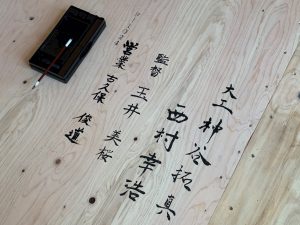 大工 神谷 拓真
西村 幸浩
監督 玉井 美桜
営業 古久保 俊道